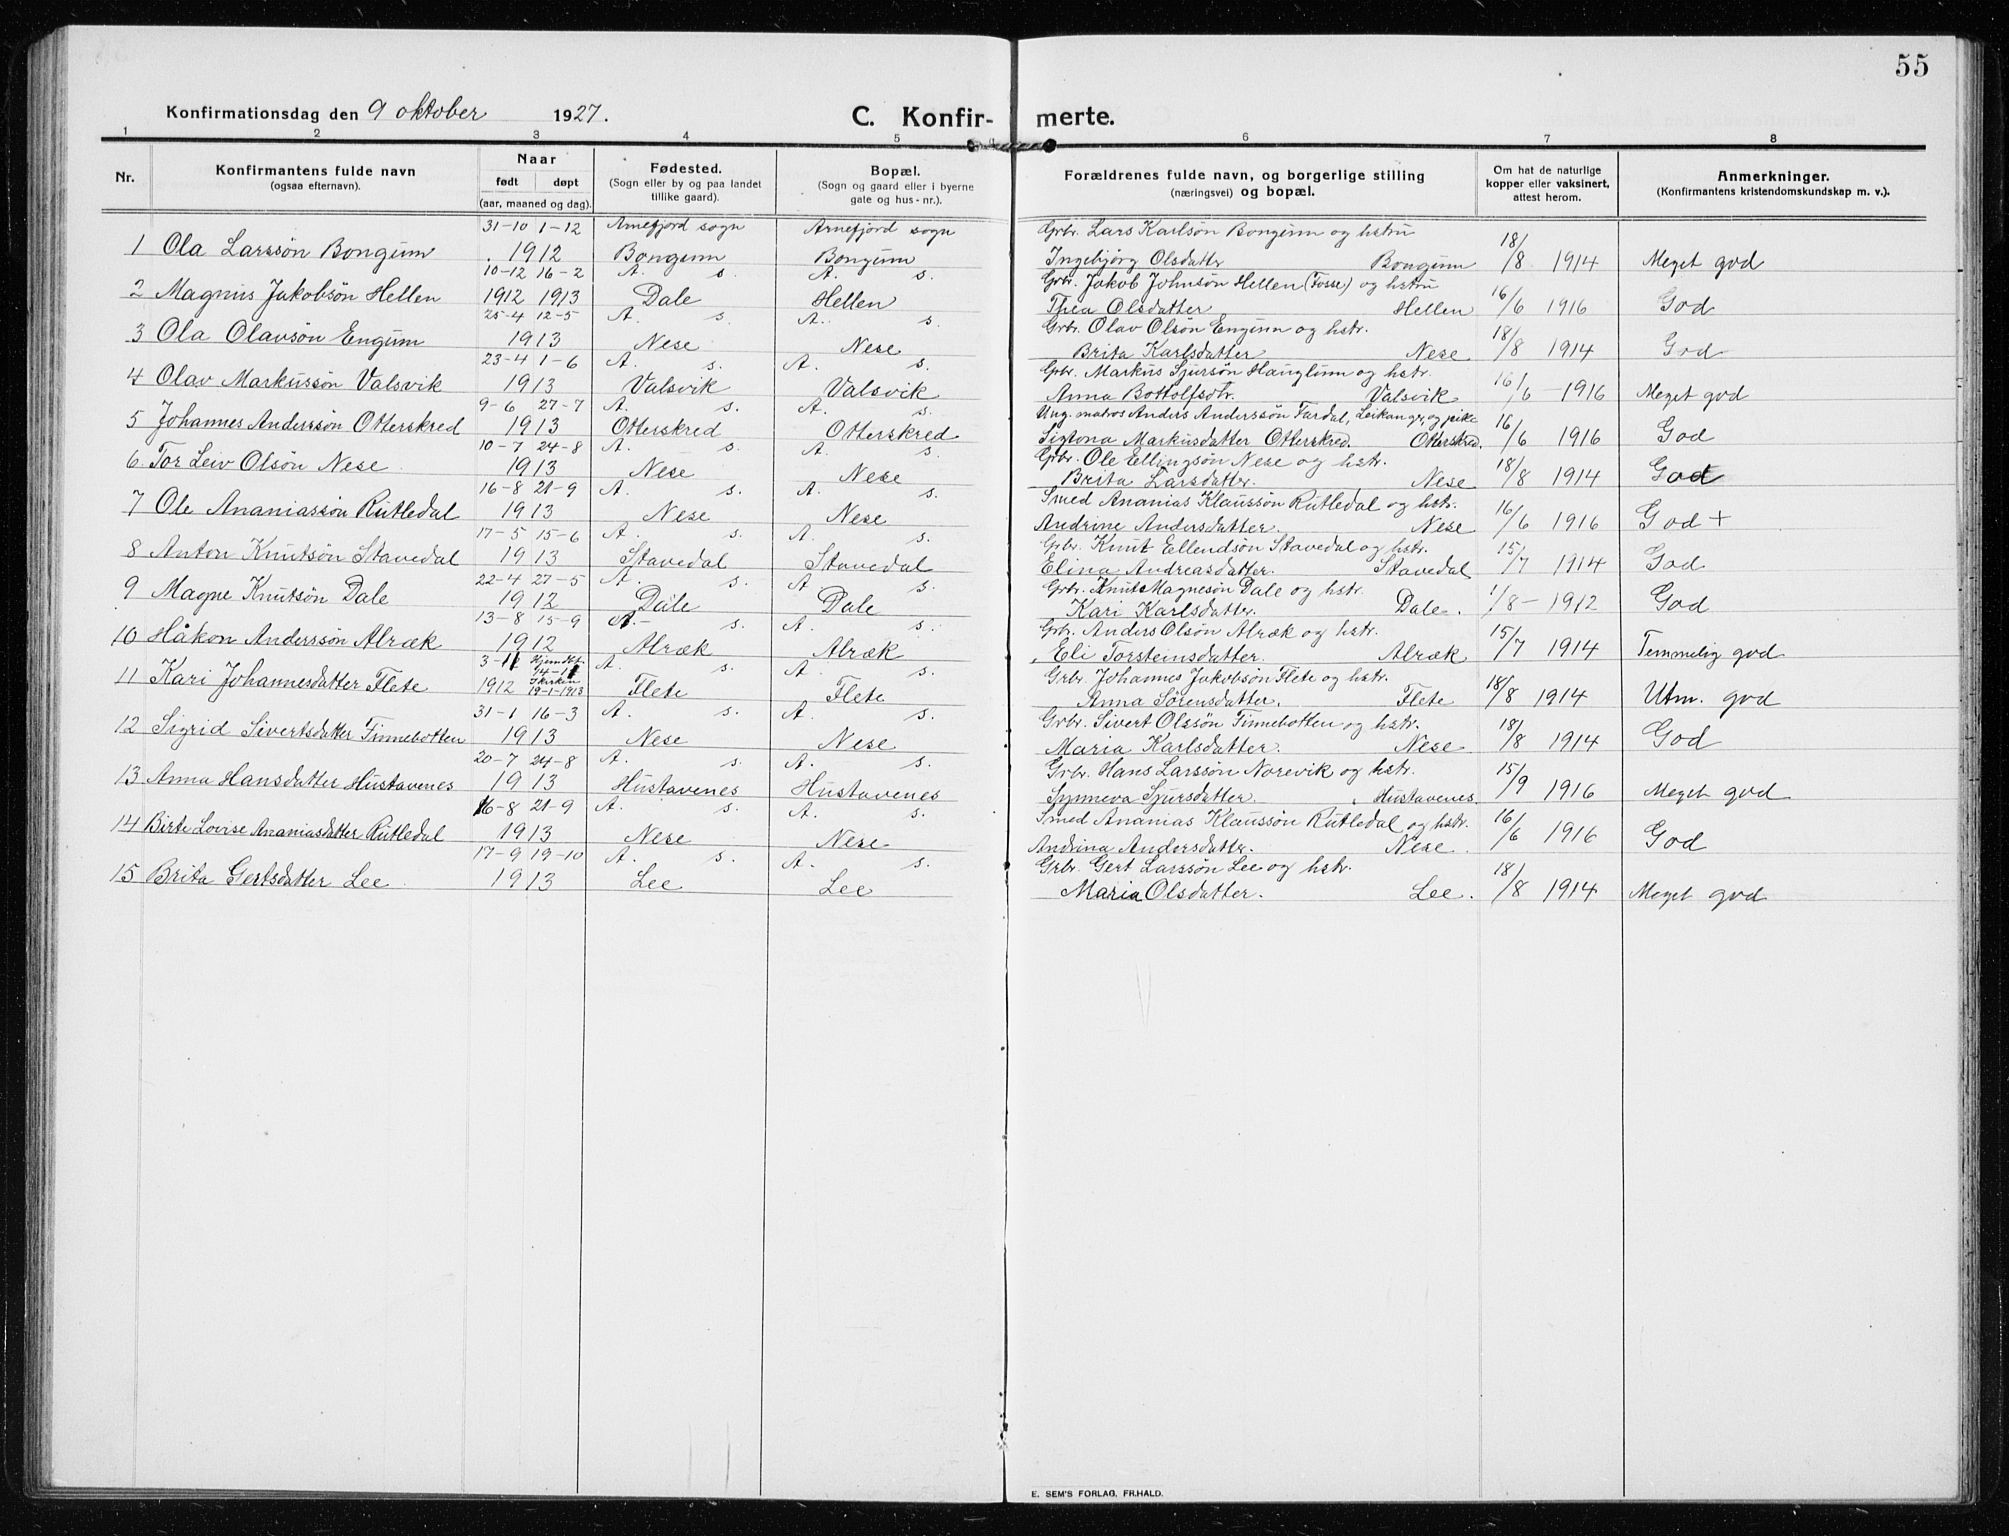 55
Konfirmationsdag den 9 oktober 1927.
C. Konfir- merte.
1 2 3 4 5 6 7 8
Nr.
Konfirmantens fulde navn
(ogsaa efternavn).
Naar
født døpt
(aar, maaned og dag).
Fødested.
(Sogn eller by og paa landet
tillike gaard).
Bopæl.
(Sogn og gaard eller i byerne
gate og hus-nr.).
Forældrenes fulde navn, og borgerlige stilling
(næringsvei) og bopæl.
Om hat de naturlige
kopper eller vaksinert,
attest herom.
Anmerkninger.
(Konfirmantens kristendomskundskap m. v.).
31-10 1-12 Arnefjord sogn Arnefjord sogn Grbr. Lars Karlsön Bongum og hstru
1 Ola Larssön Bongum 1912 Bongum Bongum Ingebjörg Olsdatter Bongum 18/8 1914 Meget god
10-12 16-2 A. s. A. s. Grbr. Jakob Johnsön Hellen (Fosse) og hstru
2 Magnus Jakobsön Hellen 1912 1913 Dale Hellen Thea Olsdatter Hellen 16/6 1916 God
25-4 12-5 A. s. A. s. Grbr. Olav Olsön Engum og hstr.
3 Ola Olavsön Engum 1913 Nese Nese Brita Karlsdatter Nese 18/8 1914 God
23-4 1-6 A. s. A. s. Grbr. Markus Sjursön Hauglum og hstr.
4 Olav Markussön Valsvik 1913 Valsvik Valsvik Anna Bottolfsdtr. Valsvik 16/6 - 1916 Meget god
9-6 27-7 A. s. A. s. Ung. matros Anders Anderssön Fardal, Leikanger, og pike
5 Johannes Anderssön Otterskred 1913 Otterskred Otterskred Sigtona Markusdatter Otterskred. Otterskred. 16/6 1916 God
10-7 24-8 A. s. A. s. Grbr. Ole Ellingsön Nese og hstr.
6. Tor Leiv Olsön Nese 1913 Nese Nese Brita Larsdatter. Nese 18/8 1914 God
16-8 21-9 A. s. A. s. Smed Ananias Klaussön Rutledal og hstr.
7 Ole Ananiassön Rutledal 1913 Nese Nese Andrine Andersdatter. Nese 16/6 1916 God +
17-5 15-6 A. s. A. s. Grbr. Knut Ellendsön Stavedal og hstr.
8 Anton Knutsön Stavedal 1913 Stavedal Stavedal Elina Andreasdatter. Stavedal 15/7 1914 God
22-4 27-5 A. s. A s. Grbr. Knut Magnesön Dale og hstr.
9 Magne Knutsön Dale 1912 Dale Dale Kari Karlsdatter. Dale. 1/8 - 1912 God
13-8 15-9 A. s. A. s. Grbr. Anders Olsön Alræk og hstr.
10 Håkon Anderssön Alræk 1912 Alræk Alræk Eli Torsteinsdatter. Alræk 15/7 1914 Temmelig god
3-11 Hjemdøpt 14-11 A. s. A. s. Grbr. Johannes Jakobsön Flete og hstr.
11 Kari Johannesdatter Flete 1912 I kirken 19-1-1913 Flete Flete Anna Sörensdatter. Flete 18/8 1914 Utm. god
31-1 16-3 A. s. A. s. Grbr. Sivert Olssön Finnebotten og hstr.
12 Sigrid Sivertsdatter Finnebotten 1913 Nese Nese Maria Karlsdatter. Nese 18/8 1914 God
20-7 24-8 A. s. A. s. Grbr. Hans Larssön Norevik og hstr.
13 Anna Hansdatter Hustavenes 1913 Hustavenes Hustavenes Synneva Sjursdatter. Hustavenes. 15/9 1916 Meget god
16-8 21-9 A. s. A. s. Smed Ananias Klaussön Rutledal og hstr.
14 Birte Lovise Ananiasdatter Rutledal 1913 Nese Nese Andrina Andersdatter. Nese. 16/6 1916 God
17-9 19-10 A. s. A. s. Grbr. Gert Larssön Lee og hstr.
15 Brita Gertsdatter Lee 1913 Lee Lee Maria Olsdatter. Lee. 18/8 1914 Meget god
E. SEM'S FORLAG, FR.HALD.